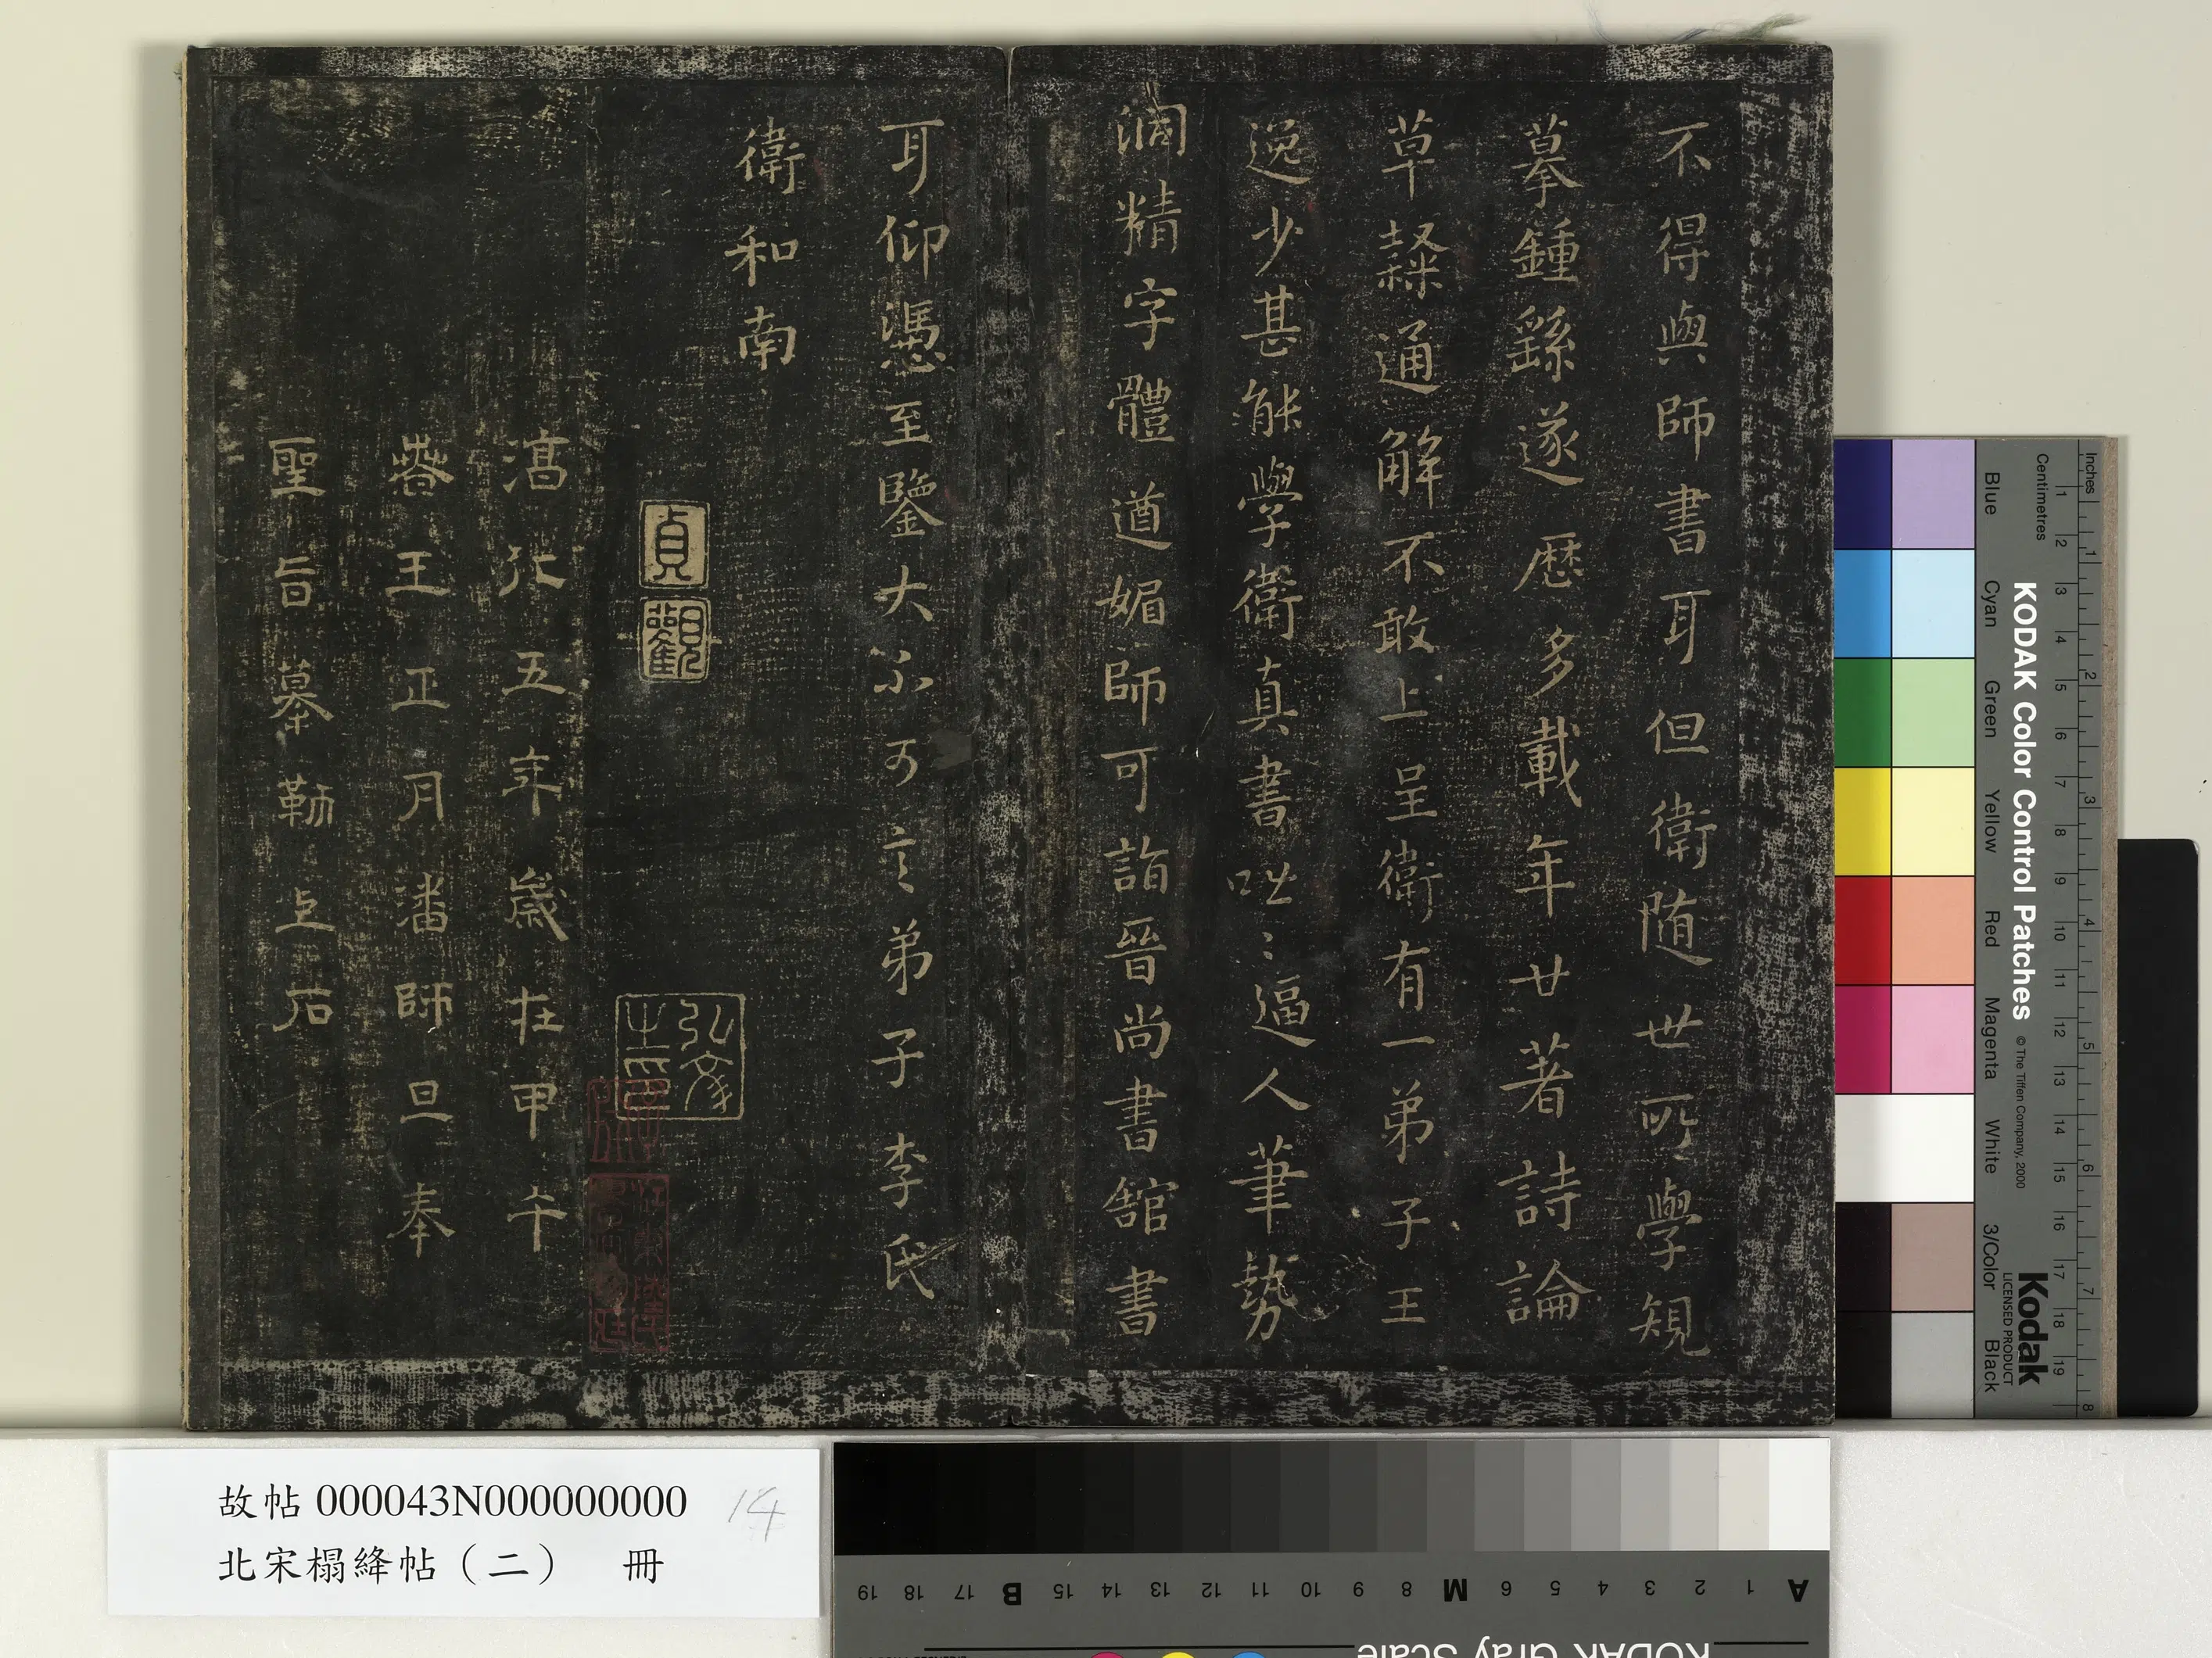 不得與師書耳但衛随世所學規
摹鍾繇遂歷多載年廿著詩論
草隸通解不敢上呈衛有一弟子王
逸少甚能學衛真書咄〻逼人筆勢
洞精字體遒媚師可詣晉尚書館書
耳仰憑至鑒大不可言弟子李氏
衛和南
貞
觀
弘文
之印
淳化五年歲在甲午
春王正月潘師旦奉
聖旨摹勒上石
故帖 000043N000000000 14
北宋榻絳帖（二） 冊
KODAK Color Control Patches © The Tiffen Company, 2000
Kodak
LICENSED PRODUCT
Inches 1 2 3 4 5 6 7 8
Centimetres 1 2 3 4 5 6 7 8 9 10 11 12 13 14 15 16 17 18 19
Blue Cyan Green Yellow Red Magenta White 3/Color Black
A 1 2 3 4 5 6 M 8 9 10 11 12 13 14 15 B 17 18 19
KODAK Gray Scale